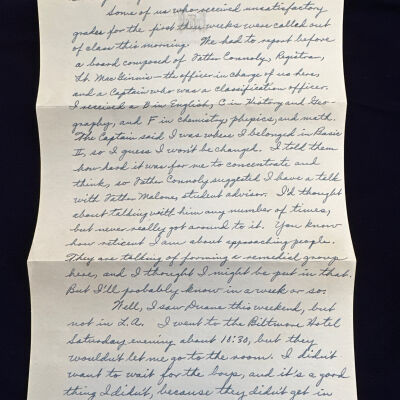 Some of us who received unsatisfactory
grades for the past three weeks were called out
of class this morning. We had to report before
a board composed of Father Connoly, Registrar,
Lt. MacGinnis - the officer in charge of us here,
and a Captain who was a classification officer.
I received a D in English, C in History and Geo-
graphy, and F in chemistry, physics, and math.
The Captain said I was where I belonged in Basic
II, so I guess I won't be changed. I told them
how hard it was for me to concentrate and
think, so Father Connoly suggested I have a talk
with Father Malone, student advisor. I'd thought
about talking with him any number of times,
but never really got around to it. You know
how reticent I am about approaching people.
They are talking of forming a remedial group
here, and I thought I might be put in that.
But I'll probably know in a week or so.
Well, I saw Duane this weekend, but
not in L.A. I went to the Biltmore Hotel
Saturday evening about 10:30, but they
wouldn't let me go to the room. I didn't
want to wait for the boys, and it's a good
thing I didn't, because they didn't get in